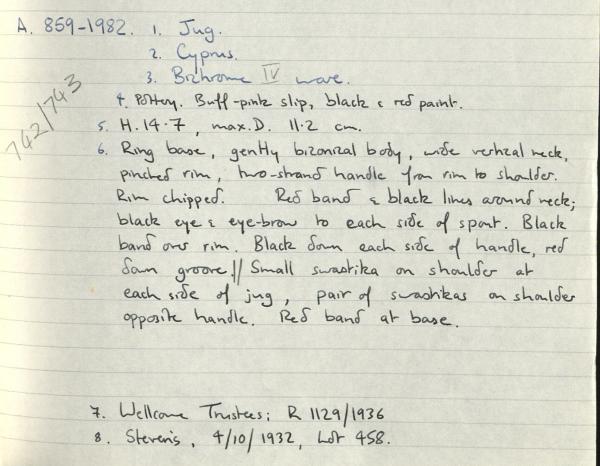 A. 859-1982. 1. Jug.
2. Cyprus.
3. Bichrome IV ware.
742/743
4. Pottery. Buff-pink slip, black & red paint.
5. H. 14·7, max. D. 11·2 cm.
6. Ring base, gently biconical body, wide vertical neck,
pinched rim, two-strand handle from rim to shoulder.
Rim chipped. Red band & black lines around neck;
black eye & eye-brow to each side of spout. Black
band over rim. Black down each side of handle, red
down groove.// Small swastika on shoulder at
each side of jug, pair of swastikas on shoulder
opposite handle. Red band at base.
7. Wellcome Trustees; R 1129/1936
8. Steven's, 4/10/1932, Lot 458.